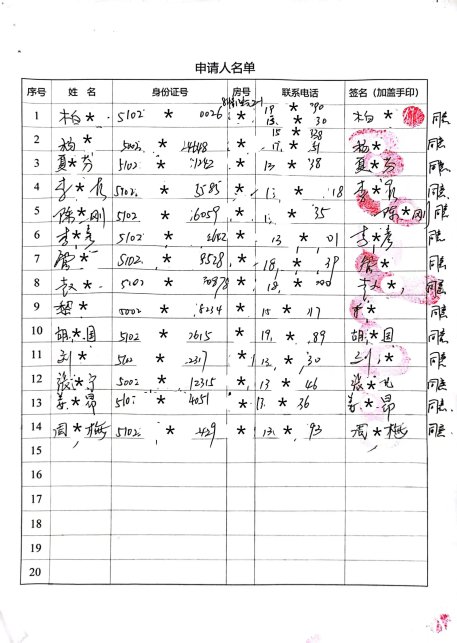 申请人名单
序号 姓 名 身份证号 房号 联系电话 签名（加盖手印）
1 柏* 5102 * 0026 * 19 * 90 柏* 同意
13 * 30
2 杨* 5002 * 4448 * 15 * 38 杨* 同意
17 * 51
3 夏*芬 5102 * 1242 * 13 * 38 夏*芬 同意
4 李* 5102 * 3585 * 13 * 18 李* 同意
5 陈*刚 5102 * 6059 * 13 * 35 陈*刚 同意
6 李* 5102 * * 13 * 01 李* 同意
7 * 5102 * 9528 * 18 * 39 * 同意
8 * 5102 * * 18 * * 同意
9 黎* 5002 * 8234 * 15 * 117 * 同意
10 胡*国 5102 * 2615 * 19 * 89 胡*国 同意
11 刘* 5102 * 2317 * 13 * 30 刘* 同意
12 张*宁 5002 * 12315 * 13 * 46 张* 同意
13 姜*昂 510 * 4051 * 13 * 36 姜*昂 同意
14 周*梅 5102 * 429 * 13 * 93 周*梅 同意
15
16
17
18
19
20